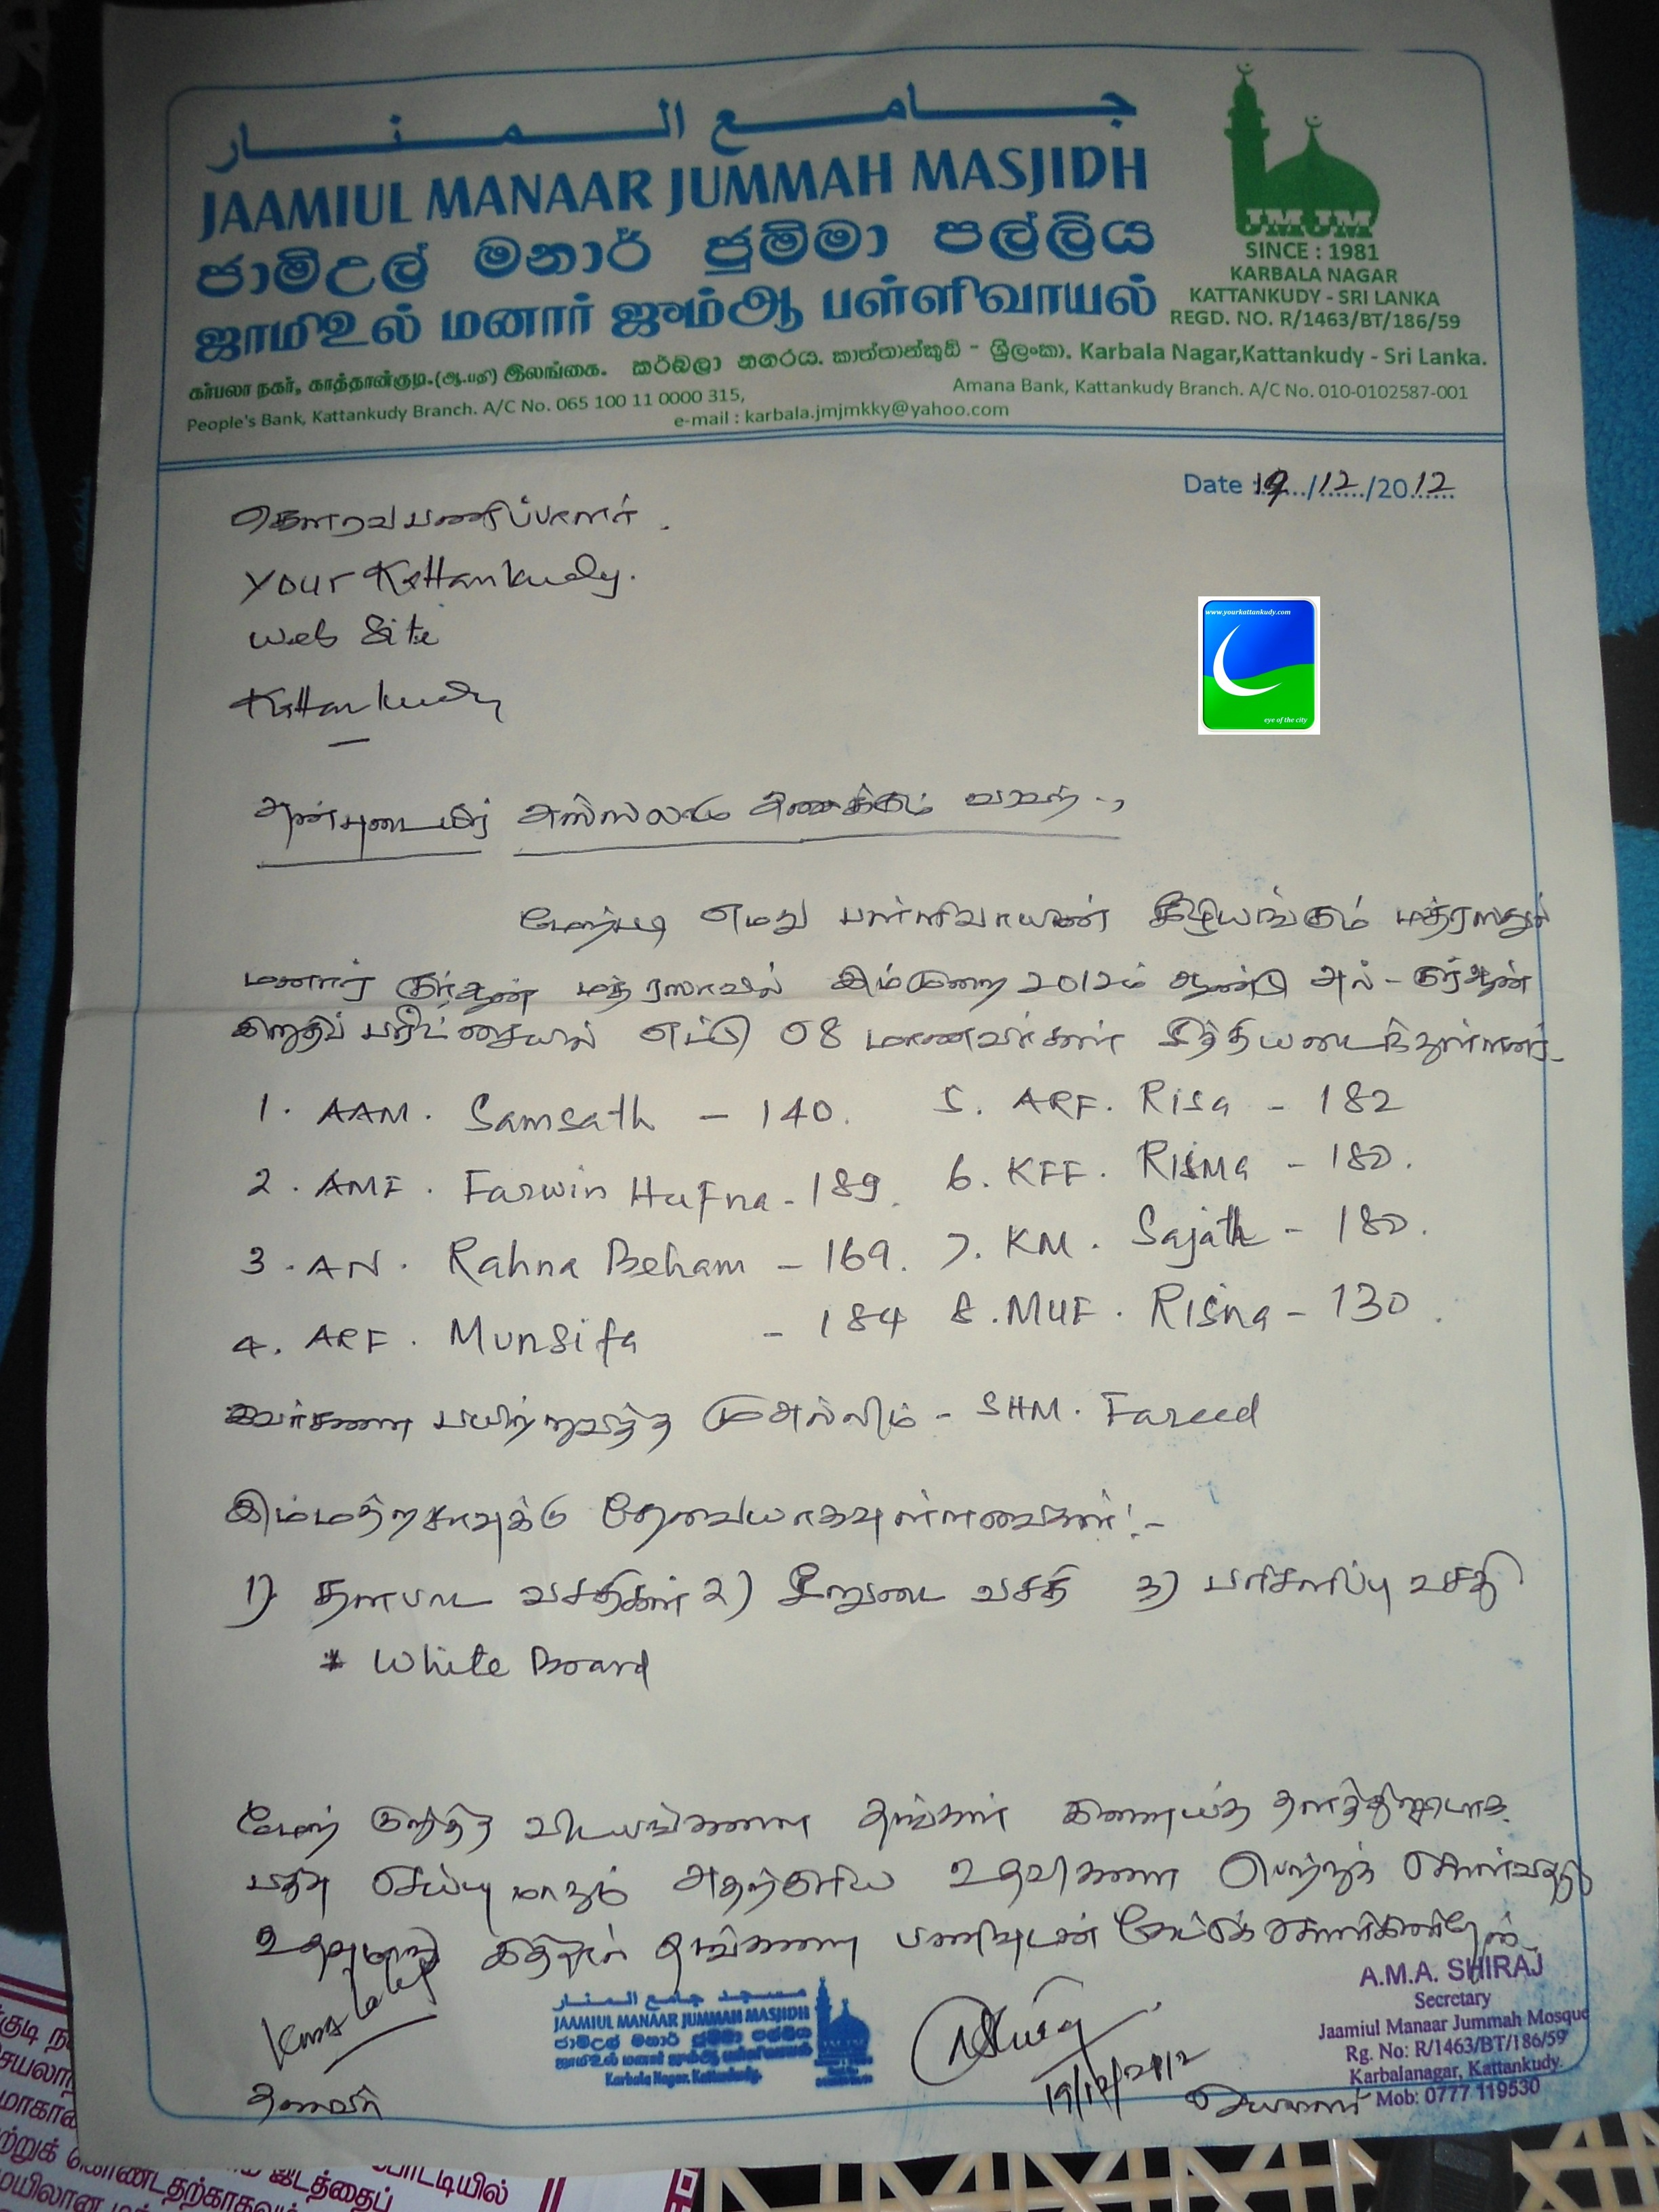 جامع المنار
JAAMIUL MANAAR JUMMAH MASJIDH
ජාමිඋල් මනාර් ජුම්මා පල්ලිය
ஜாமிஉல் மனார் ஜும்ஆ பள்ளிவாயல்
JMJM
SINCE : 1981
KARBALA NAGAR
KATTANKUDY - SRI LANKA
REGD. NO. R/1463/BT/186/59
கர்பலா நகர், காத்தான்குடி.(ஆ.பதி) இலங்கை. කර්බලා නගරය. කාත්තාන්කුඩි - ශ්‍රීලංකා. Karbala Nagar,Kattankudy - Sri Lanka.
People's Bank, Kattankudy Branch. A/C No. 065 100 11 0000 315, Amana Bank, Kattankudy Branch. A/C No. 010-0102587-001
e-mail : karbala.jmjmkky@yahoo.com
Date : 19/12/2012
கௌரவ பணிப்பாளர்.
Your Kattankudy.
Web Site
Kattankudy
www.yourkattankudy.com
eye of the city
அன்புடையீர் அஸ்ஸலாமு அலைக்கும் வரஹ்..,
மேற்படி எமது பள்ளிவாயலின் கீழியங்கும் மத்ரஸதுல்
மனார் குர்ஆன் மத்ரஸாவில் இம்முறை 2012ம் ஆண்டு அல்-குர்ஆன்
இறுதிப் பரீட்சையில் எட்டு 08 மாணவர்கள் சித்தியடைந்துள்ளனர்.
1. AAM. Samsath - 140. 5. ARF. Risa - 182
2. AMF. Farwin Hufna - 189. 6. KFF. Risma - 180.
3. AN. Rahna Beham - 169. 7. KM. Sajath - 180.
4. ARF. Munsifa - 184 8. MUF. Risna - 130.
இவர்களை பயிற்றுவித்த முஅல்லிம் - SHM. Fareed
இம்மத்றசாவுக்கு தேவையாகவுள்ளவைகள்:-
1) தளபாட வசதிகள் 2) சீறுடை வசதி 3) பரிசளிப்பு வசதி
* White Board
மேற் குறித்த விடயங்களை தங்கள் இணையத் தளத்தினூடாக
பதிவு செய்யுமாறும் அதற்குரிய உதவிகளை பெற்றுக் கொள்வதற்கு
உதவுமாறு இத்தால் தங்களை பணிவுடன் கேட்டுக் கொள்கின்றேன்.
مسجد جامع المنار
JAAMIUL MANAAR JUMMAH MASJIDH
ජාමිඋල් මනාර් ජුම්මා පල්ලිය
ஜாமிஉல் மனார் ஜும்ஆ பள்ளிவாயல்
Karbala Nagar, Kattankudy.
19/12/2012
தலைவர்
செயலாளர்
A.M.A. SHIRAJ
Secretary
Jaamiul Manaar Jummah Mosque
Rg. No: R/1463/BT/186/59
Karbalanagar, Kattankudy.
Mob: 0777 119530